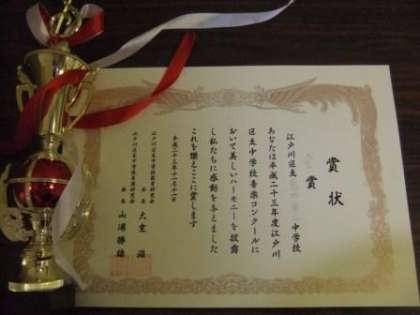 賞状
賞
江戸川区立 中学校
あなたは平成二十三年度江戸川
区立中学校音楽コンクールに
おいて美しいハーモニーを披露
し私たちに感動を与えました
これを讃えここに賞します
平成二十三年十一月十一日
江戸川区立中学校教育研究会
会長 大室
江戸川区立中学校音楽研究会
会長 山浦勝雄